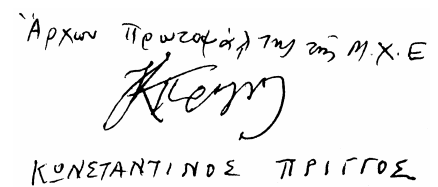 Ἄρχων Πρωτοψάλτης τῆς Μ.Χ.Ε
ΚΩΝΣΤΑΝΤΙΝΟΣ ΠΡΙΓΓΟΣ